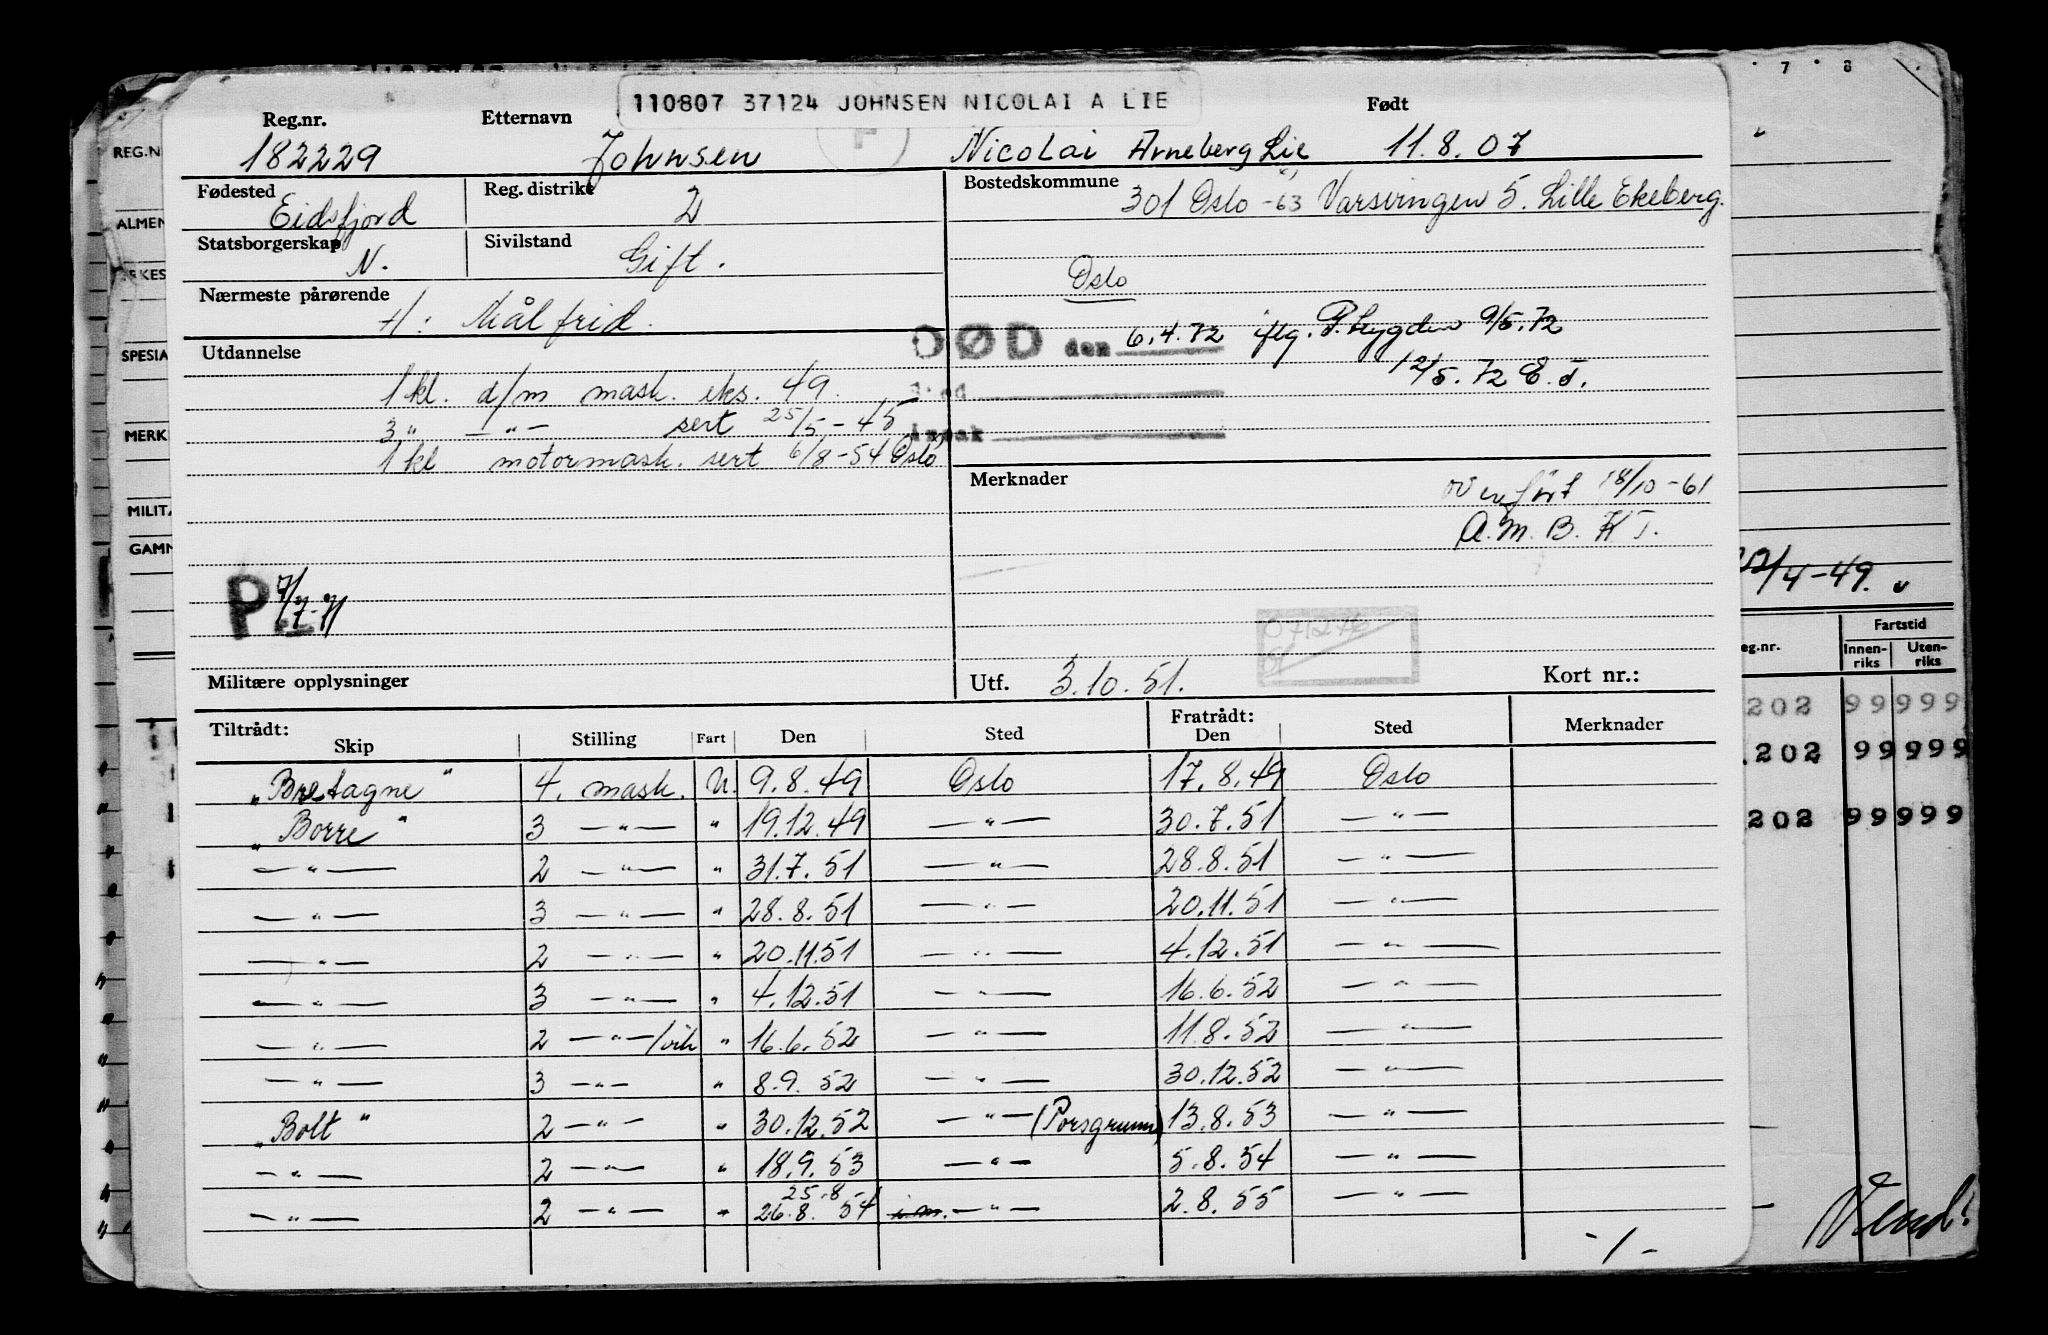 110807 37124 JOHNSEN NICOLAI A LIE
Reg.nr. Etternavn Født
182229 Johnsen Nicolai Arneberg Lie 11.8.07
Fødested Reg. distrikt Bostedskommune
Eidsfjord 2 301 Oslo -63 Varsvingen 5. Lille Ekeberg.
Statsborgerskap Sivilstand
N. Gift.
Oslo
Nærmeste pårørende
H: Målfrid.
DØD den 6.4.72 iflg. P.trygden 9/5.72
12/5.72 E.T.
Utdannelse
1 kl. d/m mask. eks. 49.
3 " — " — sert 25/5-45
1 kl motormask. sert 6/8-54 Oslo
Merknader
overført 18/10-61
A.M.B. K T.
P 7/7-71
071276
Militære opplysninger
Utf. 3.10.51. Kort nr.:
Tiltrådt: Fratrådt:
Skip Stilling Fart Den Sted Den Sted Merknader
"Bretagne" 4. mask. U. 9.8.49 Oslo 17.8.49 Oslo
"Borre" 3 — " — " 19.12.49 — " — 30.7.51 — " —
— " — 2 — " — " 31.7.51 — " — 28.8.51 — " —
— " — 3 — " — " 28.8.51 — " — 20.11.51 — " —
— " — 2 — " — " 20.11.51 — " — 4.12.51 — " —
— " — 3 — " — " 4.12.51 — " — 16.6.52 — " —
— " — 2 — " — /vik " 16.6.52 — " — 11.8.52 — " —
— " — 3 — " — " 8.9.52 — " — 30.12.52 — " —
"Bolt" 2 — " — " 30.12.52 — " — (Porsgrunn) 13.8.53 — " —
— " — 2 — " — " 18.9.53 — " — 5.8.54 — " —
25.8
— " — 2 — " — " 26.8.54 — " — 2.8.55 — " —
-/-
7 8
REG.N
ALMEN
SPESIA
MERK
MILIT
GAMM
/4-49.
Fartstid
eg.nr. Innen-riks Uten-riks
202 99 999
202 99 999
202 99 999
Vend!